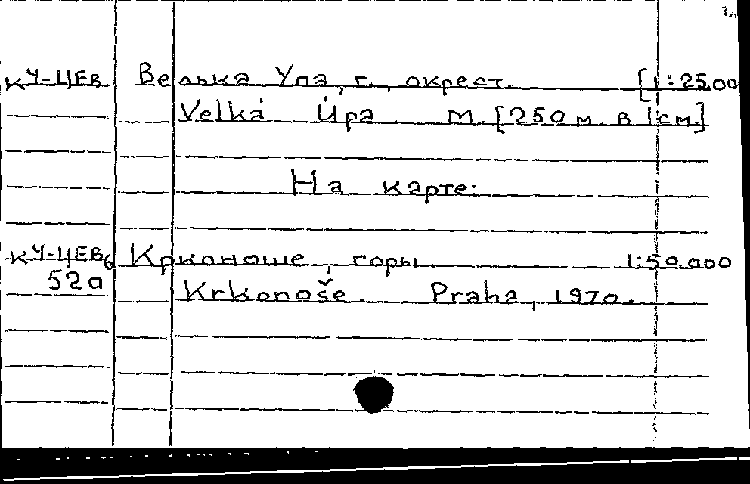 КУ-ЦЕв Велька Упа, г., окрест. [1:25.00
Velká Úpa М. [250 м. в 1см.]
На карте:
КУ-ЦЕВб Крконоше, горы 1:50.000
52а
Krkonoše. Praha, 1970.